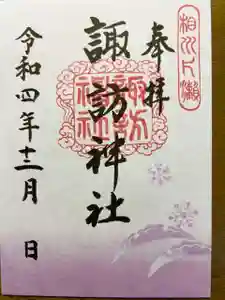 奉拝
諏訪神社
諏訪
神社
令和四年十二月 日